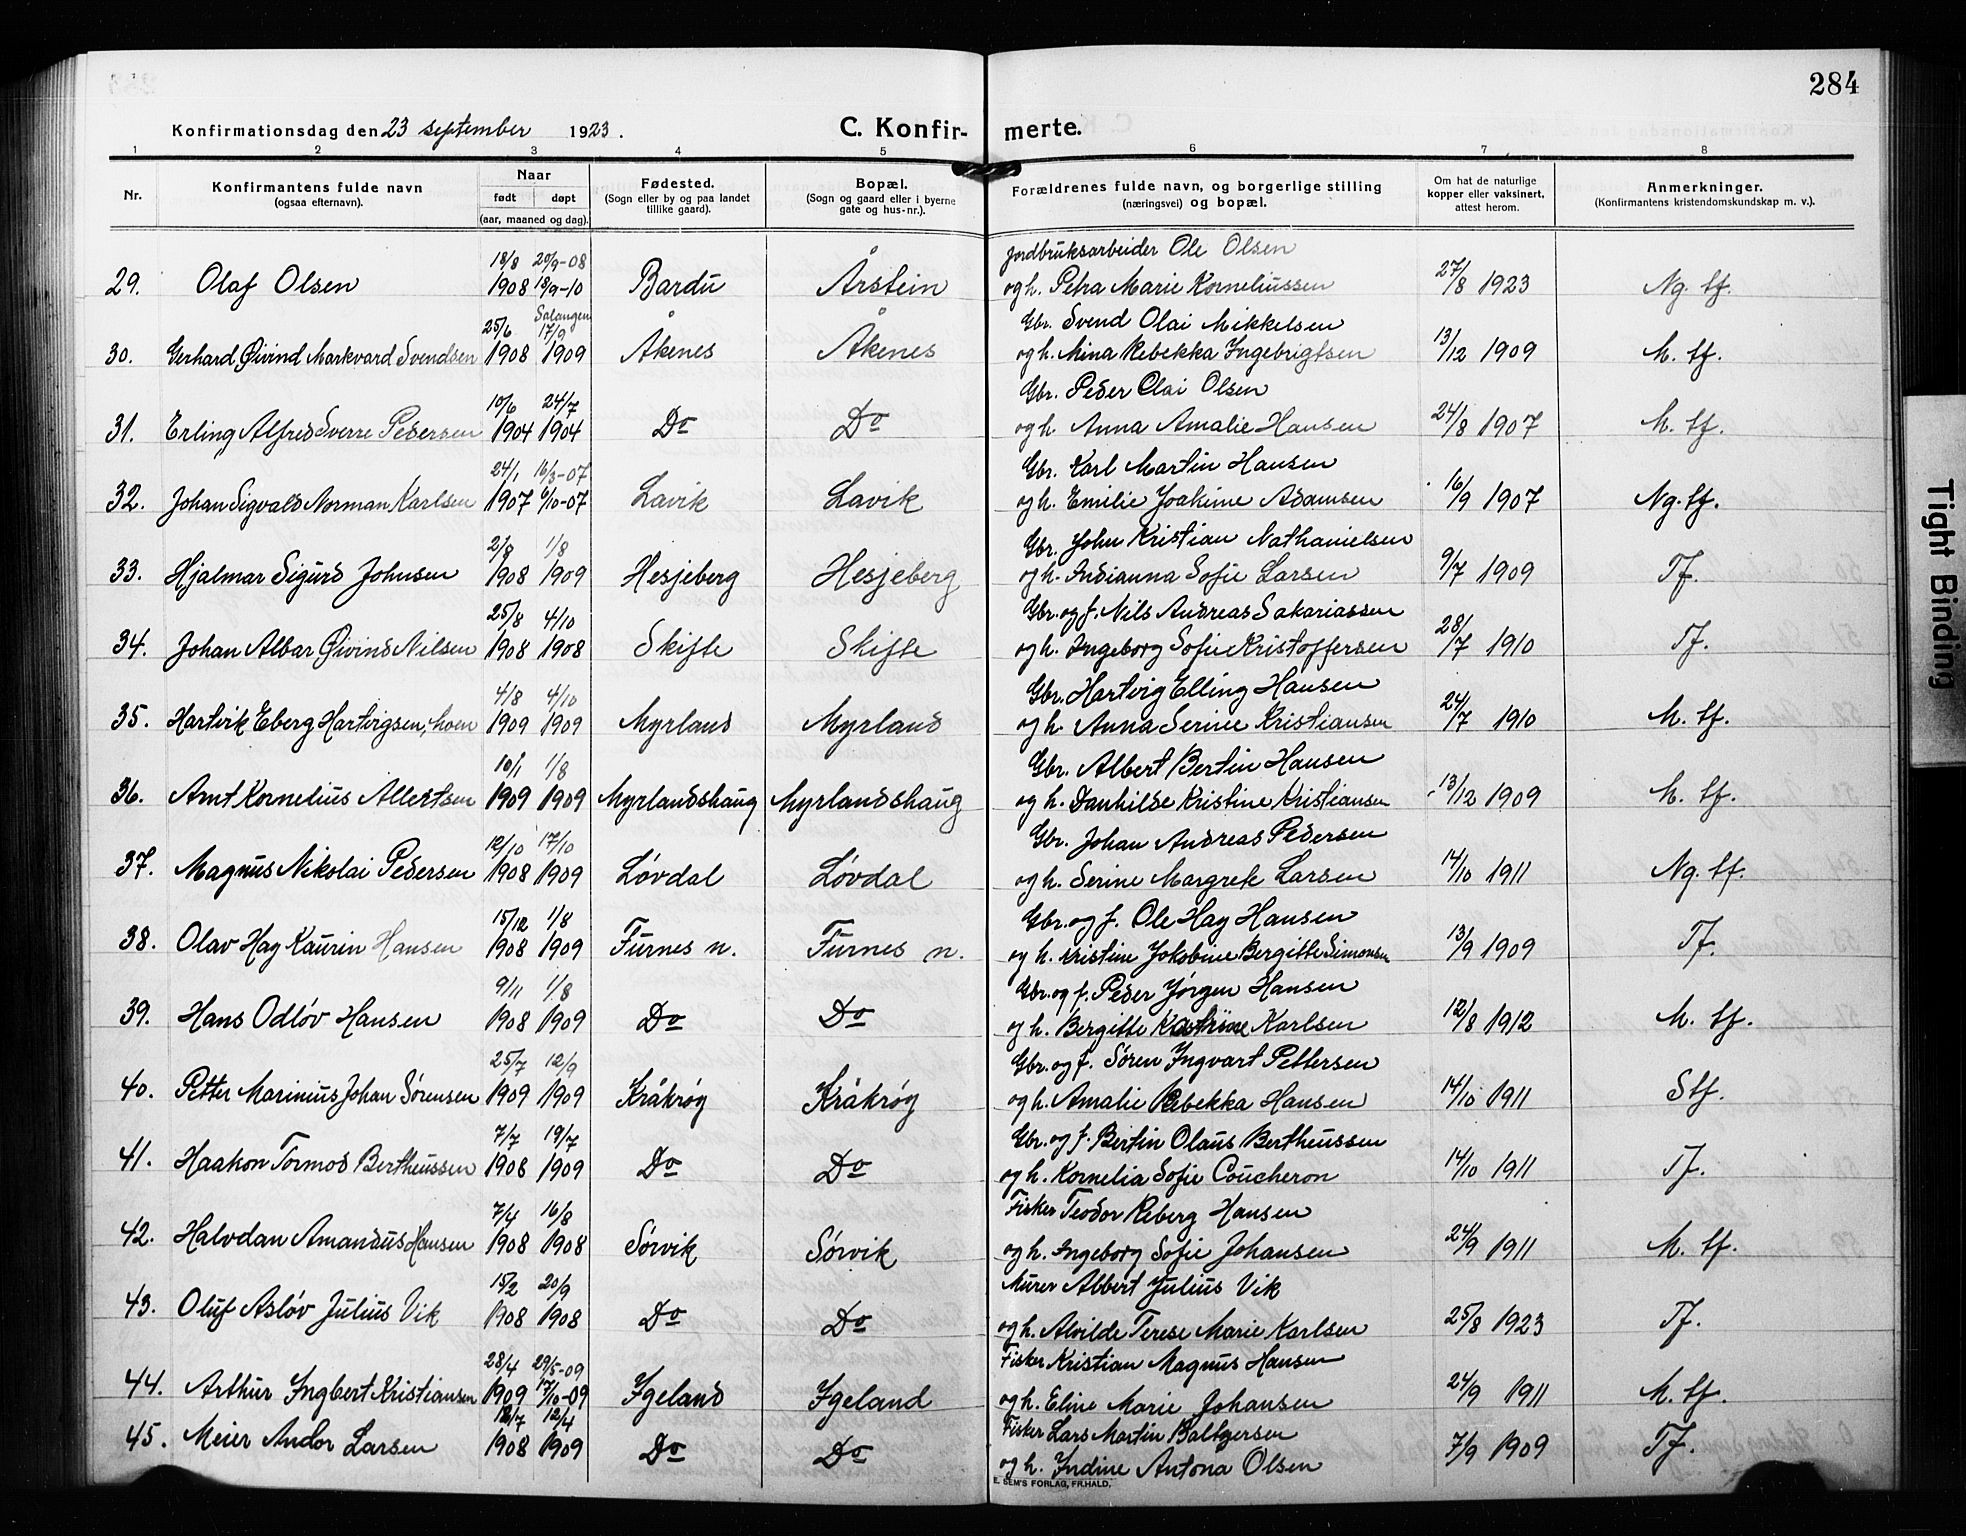 284
Konfirmationsdag den 23 september 1923.
C. Konfirmerte.
1 2 3 4 5 6 7 8
Nr.
Konfirmantens fulde navn
(ogsaa efternavn).
Naar
født døpt
(aar, maaned og dag).
Fødested.
(Sogn eller by og paa landet
tillike gaard).
Bopæl.
(Sogn og gaard eller i byerne
gate og hus-nr.).
Forældrenes fulde navn, og borgerlige stilling
(næringsvei) og bopæl.
Om hat de naturlige
kopper eller vaksinert,
attest herom.
Anmerkninger.
(Konfirmantens kristendomskundskap m. v.).
18/8 20/9-08 Jordbruksarbeider Ole Olsen
29. Olaf Olsen 1908 18/9-10 Bardu Årstein og h. Petra Marie Korneliussen 27/8 1923 Ng. tf.
25/6 Salangen 17/9 Gbr. Svend Olai Mikkelsen
30. Gerhard Øivind Markvard Svendsen 1908 1909 Åkenes Åkenes og h. Mina Rebekka Ingebrigtsen 13/12 1909 M. tf.
10/6 24/7 Gbr. Peder Olai Olsen
31. Erling Alfred Sverre Pedersen 1904 1904 Do Do og h. Anna Amalie Hansen 24/8 1907 M. tf.
24/1 16/3-07 Gbr. Karl Martin Hansen
32. Johan Sigvald Norman Karlsen 1907 6/10-07 Lavik Lavik og h. Emilie Joakime Adamsen 16/9 1907 Ng. tf.
2/8 1/8 Gbr. John Kristian Nathanielsen
33. Hjalmar Sigurd Johnsen 1908 1909 Hesjeberg Hesjeberg og h. Indianna Sofie Larsen 9/7 1909 Tf.
25/8 4/10 Gbr. og f. Nils Andreas Sakariassen
34. Johan Albar Øivind Nilsen 1908 1908 Skifte Skifte og h. Ingeborg Sofie Kristoffersen 28/7 1910 Tf.
4/8 4/10 Gbr. Hartvig Elling Hansen
35. Hartvik Eberg Hartvigsen, hoen 1909 1909 Myrland Myrland og h. Anna Serine Kristiansen 24/7 1910 M. tf.
10/1 1/8 Gbr. Albert Bertin Hansen
36. Arnt Kornelius Albertsen 1909 1909 Myrlandshaug Myrlandshaug og h. Danhilde Kristine Kristiansen 13/12 1909 M. tf.
12/10 17/10 Gbr. Johan Andreas Pedersen
37. Magnus Nikolai Pedersen 1908 1909 Løvdal Løvdal og h. Serine Margrek Larsen 14/10 1911 Ng. tf.
15/12 1/8 Gbr. og f. Ole Hag Hansen
38. Olav Hag Kaurin Hansen 1908 1909 Furnes n. Furnes n. og h. Kristine Jokobine Bergitte Simonsen 13/9 1909 Tf.
9/11 1/8 Gbr. og f. Peder Jørgen Hansen
39. Hans Odløv Hansen 1908 1909 Do Do og h. Bergitte Katrine Karlsen 12/8 1912 M. tf.
25/7 12/9 Gbr. og f. Søren Ingvart Pettersen
40. Petter Marinius Johan Sørensen 1909 1909 Kråkrøg Kråkrøg og h. Amalie Rebekka Hansen 14/10 1911 Stf.
7/7 19/7 Gbr. og f. Bertin Olaus Bertheussen
41. Haakon Tormod Bertheussen 1908 1909 Do Do og h. Kornelia Sofie Coucheron 14/10 1911 Tf.
7/4 16/8 Fisker Teodor Reberg Hansen
42. Halvdan Amandus Hansen 1908 1908 Sørvik Sørvik og h. Ingeborg Sofie Johansen 24/9 1911 M. tf.
15/2 20/9 Murer Albert Julius Vik
43. Oluf Asløv Julius Vik 1908 1908 Do Do og h. Alvilde Terese Marie Karlsen 25/8 1923 Tf.
28/4 29/5-09 Fisker Kristian Magnus Hansen
44. Arthur Ingbert Kristiansen 1909 17/10-09 Ygeland Ygeland og h. Eline Marie Johansen 24/9 1911 M. tf.
12/4 Fisker Lars Martin Baltzersen
45. Meier Andor Larsen 1908 1909 Do Do og h. Indine Antona Olsen 7/9 1909 Tf.
E. SEM'S FORLAG, FR.HALD.
Tight Binding